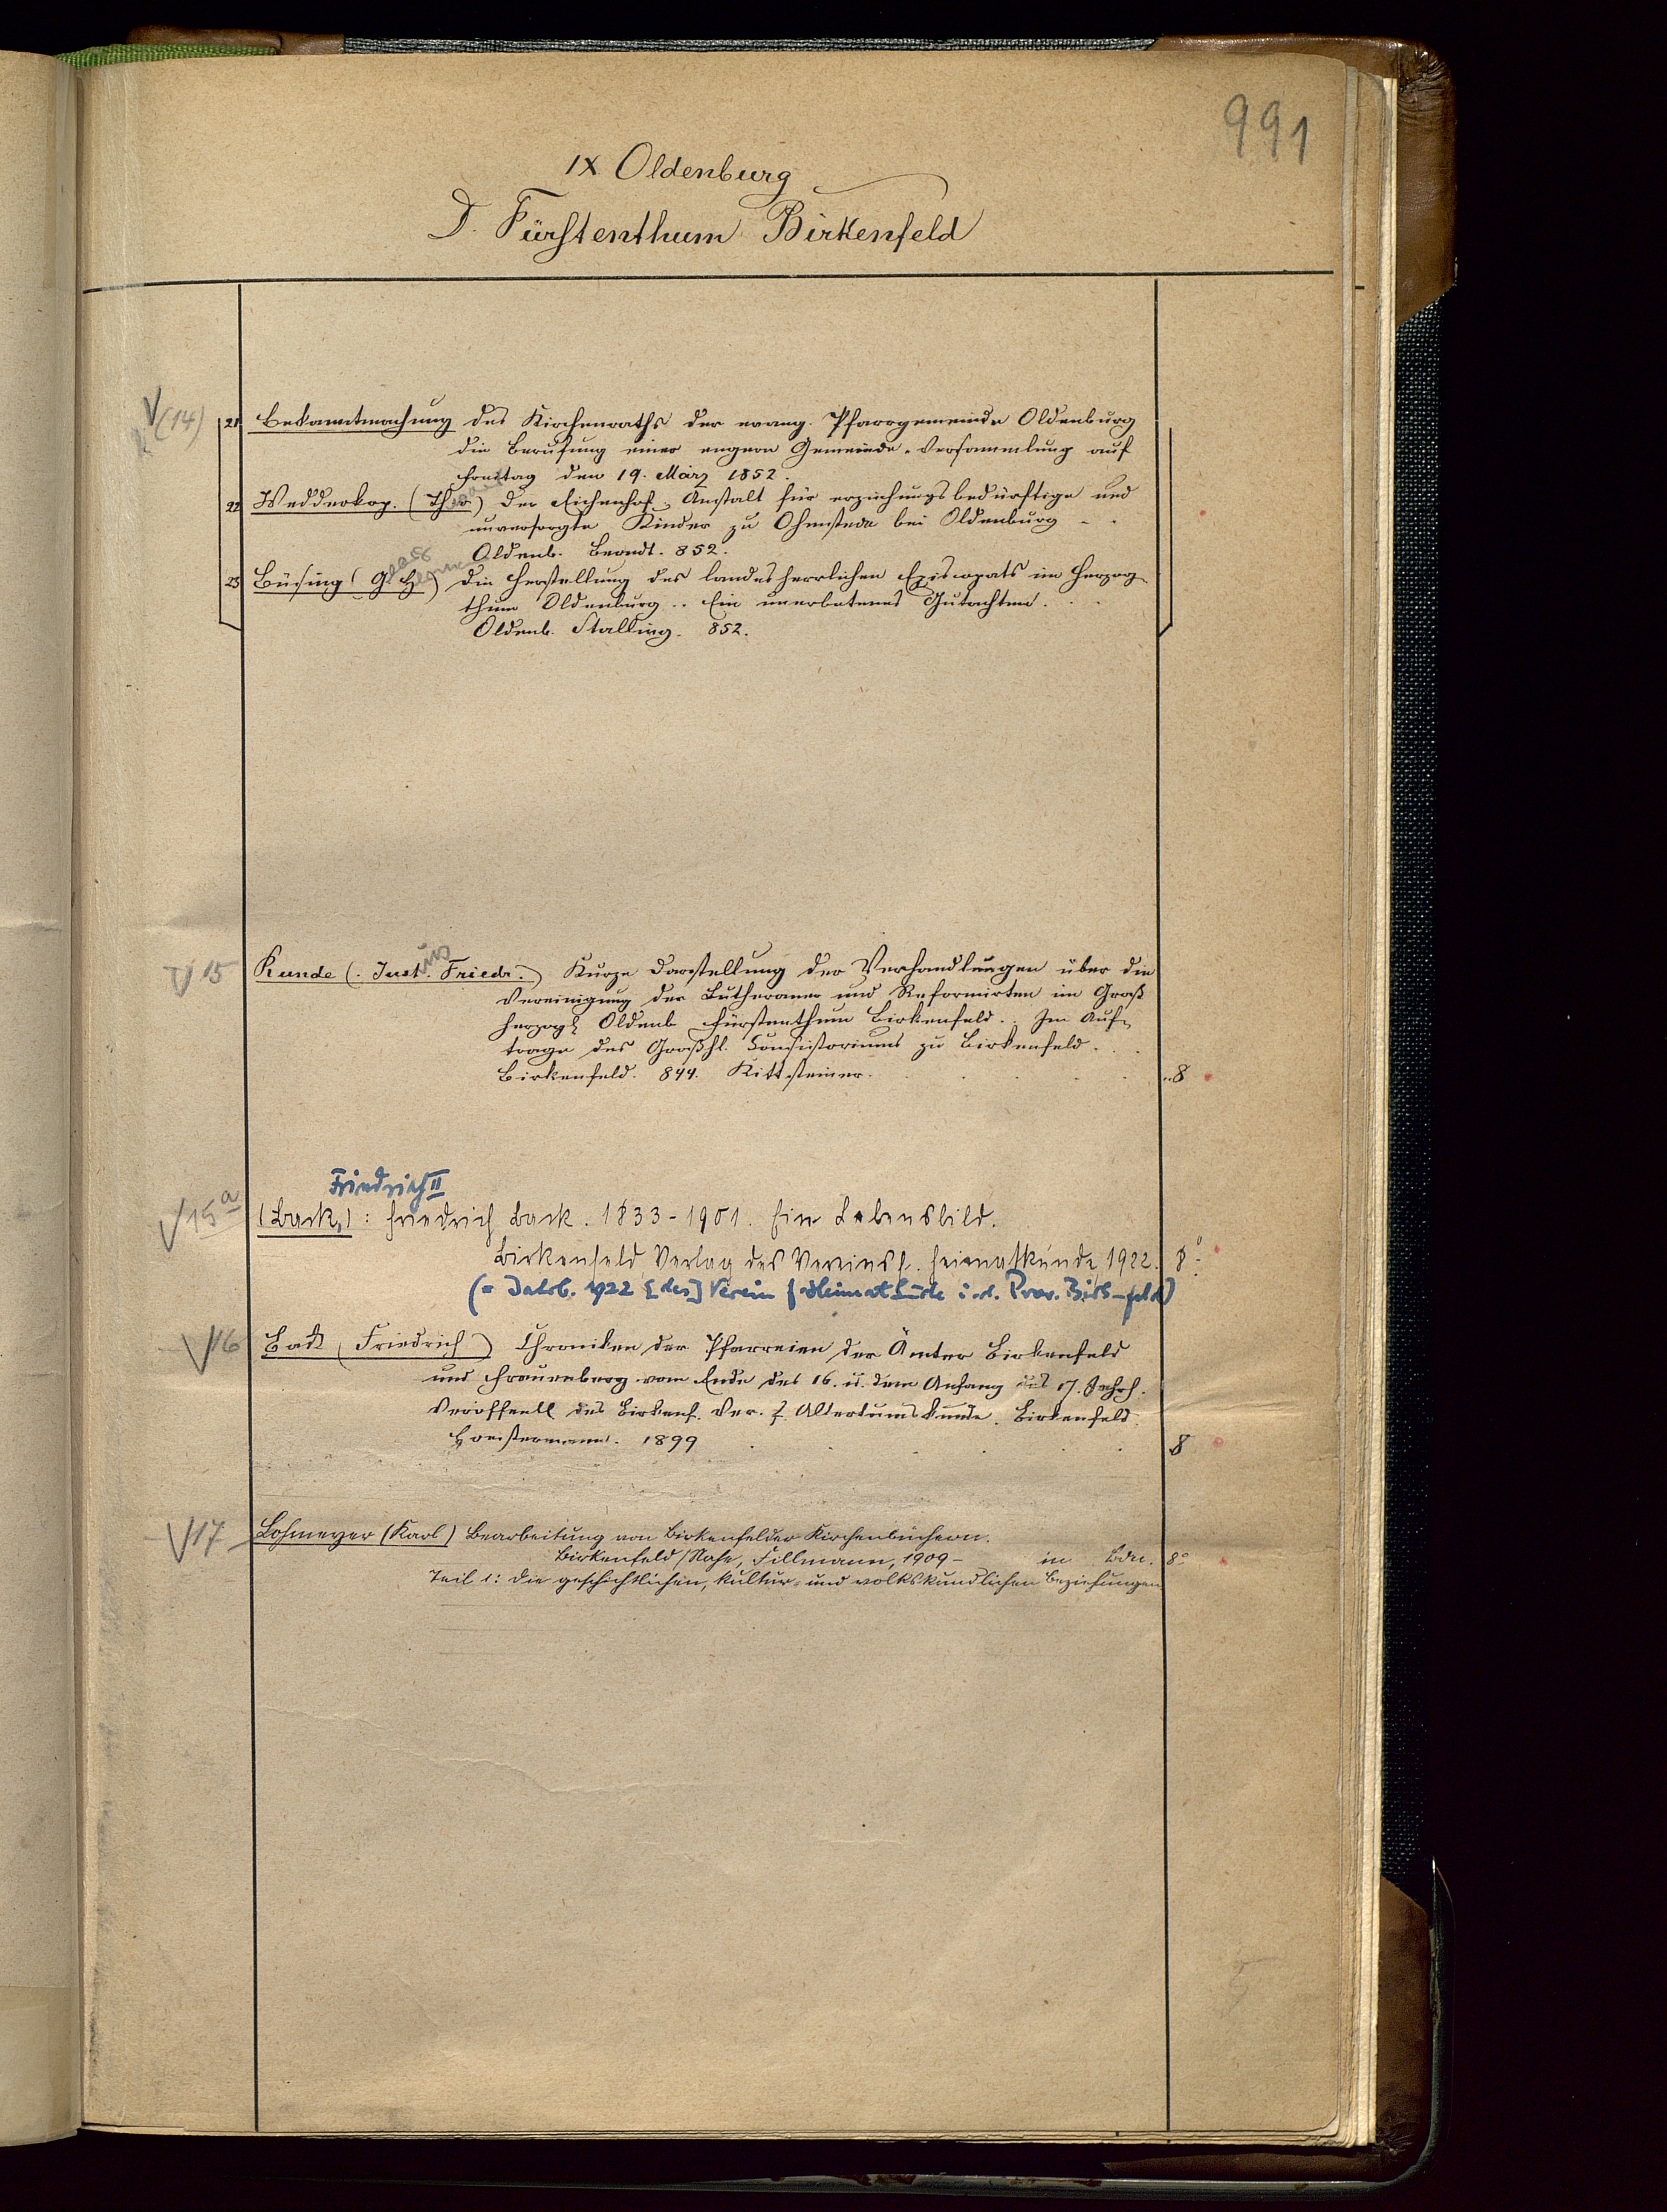 991
IX Oldenburg
D. Fürstenthum Birkenfeld
(14) 21 Bekanntmachung des Kirchenraths der evang. Pfarrgemeinde Oldenburg
die Berufung einer engern Gemeinde-Versammlung auf
Freitag den 19. März 1852.
22 Wedderkop. (Theo) Der Eichenhof. Anstalt für erziehungsbedürftige und
unversorgte Kinder zu Ohmstede bei Oldenburg
Oldenb. Berndt. 852.
23 Büsing (G. H.) Die Herstellung des landesherrlichen Episcopats im Herzog-
thum Oldenburg.. Ein unerbetenes Gutachten.
Oldenb. Stalling. 852.
15 Runde (. Just. Friedr.) Kurze Darstellung der Verhandlungen über die
Vereinigung der Lutheraner und Reformirten im Groß
herzogl Oldenb Fürstenthum Birkenfeld.. Im Auf-
trage des Großhl. Consistoriums zu Birkenfeld.
Birkenfeld. 844. Kittsteiner. 8
Friedrich II
15a (Back,) : Friedrich Back. 1833-1901. Ein Lebensbild.
Birkenfeld, Verlag des Vereins f. Heimatkunde, 1922. 8°
(= Jahrb. 1922 [des] Verein f Heimatkunde i. d. Prov. Birkenfeld)
16 Back (Friedrich) Chroniken der Pfarreien der Ämter Birkenfeld
und Frauenberg vom Ende des 16. u. dem Anfang des 17. Jahrh.
Veröffentl des Birkenf. Ver. f. Altertumskunde. Birkenfeld.
1899 8
17 Lohmeyer (Karl) Bearbeitung von Birkenfelder Kirchenbüchern.
Birkenfeld/Nahe, Fillmann, 1909- in Bdn. 8°
Teil 1: Die geschichtlichen, kultur- und volkskundlichen Beziehungen